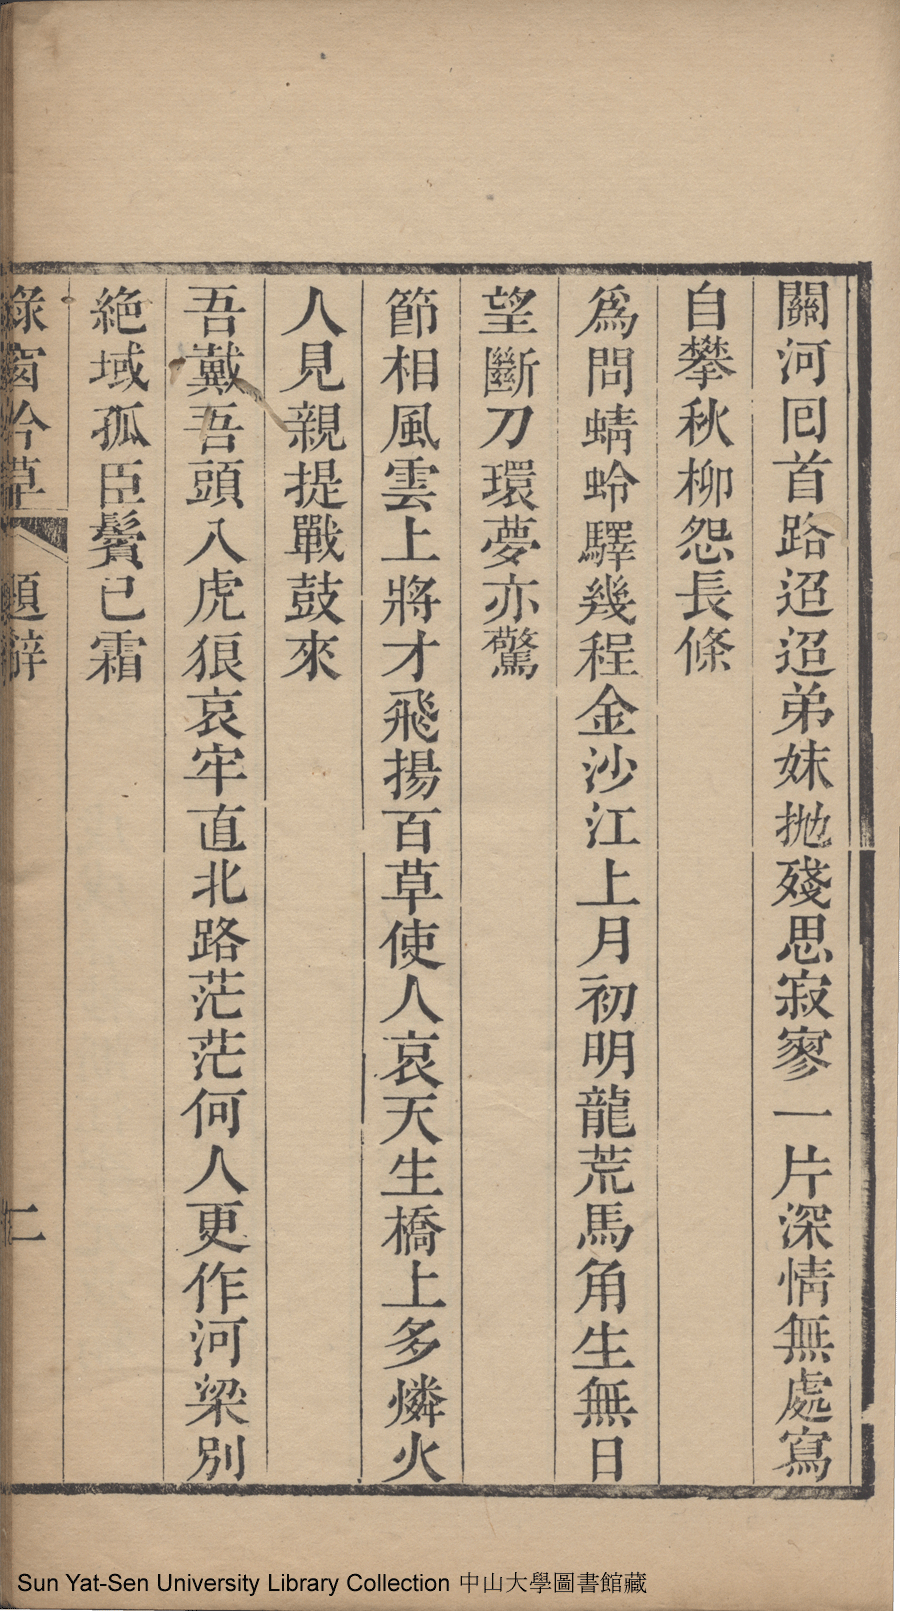 關河囘首路迢迢弟妹抛殘思寂寥一片深情無處寫
自攀秋柳怨長條
爲問蜻蛉驛幾程金沙江上月初明龍荒馬角生無日
望斷刀環夢亦驚
節相風雲上將才飛揚百草使人哀天生橋上多燐火
人見親提戰鼓來
吾戴吾頭入虎狼哀牢直北路茫茫何人更作河梁別
絶域孤臣鬢已霜
綠窗吟草 題辭 二
Sun Yat-Sen University Library Collection 中山大學圖書館藏